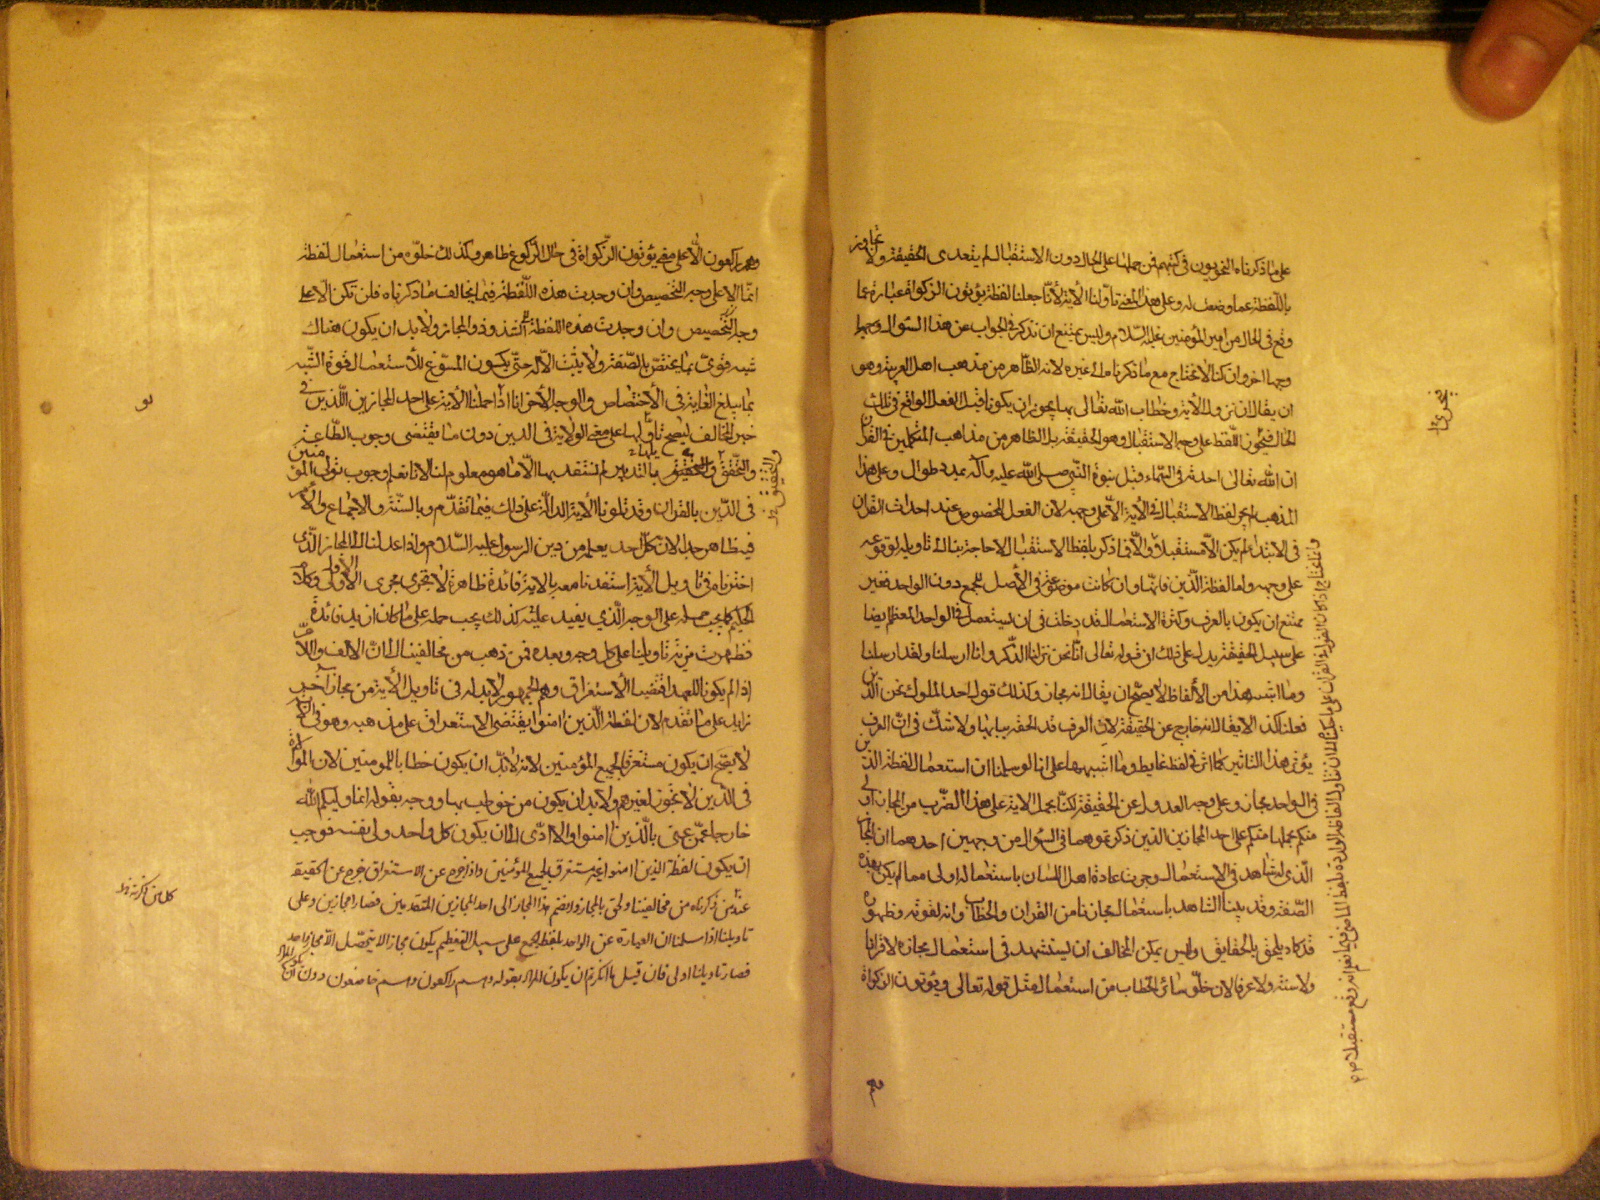 على ما ذكرناه النحويون في كتبهم فمن حملها على الحال دون الاستقبال لم يتعدى الحقيقة ولا تجاوز
باللفظة عما وضعت له وعلى هذا المعنى تأولنا الآية لأنا جعلنا لفظة يؤتون الزكوة عبارة عما
وقع في الحال من أمير المؤمنين عليه السلام وليس يمتنع ان نذكر في الجواب عن هذا السؤال وجها
وجها اخر وان كنا لا نحتاج مع ما ذكرناه الى غيره لانه الظاهر من مذهب اهل العربية وهو
ان يقال ان نزول الآية وخطاب الله تعالى بها يجوز ان يكونا قبل الفعل الواقع في تلك
الحال فيكون اللفظ على وجه الاستقبال وهو الحقيقة بل الظاهر من مذاهب المتكلمين في القرآن
ان الله تعالى احدثه في السماء قبل نبوة النبي صلى الله عليه وآله بمدد طوال وعلى هذا
المذهب لم يجر لفظ الاستقبال في الآية الا على وجهه لان الفعل المخصوص عند احداث القرآن
في الابتداء لم يكن الا مستقبلا والا فما ذكر بلفظ الاستقبال لا حاجة بنا الى تأويله لوقوعه
على وجهه واما لفظة الذين فانها وان كانت موضوعة في الأصل للجمع دون الواحد فغير
ممتنع ان يكون بالعرف وكثرة الاستعمال قد دخلت في ان تستعمل في الواحد المعظم ايضا
على سبيل الحقيقة يدل على ذلك ان قوله تعالى انا نحن نزلنا الذكر وانا ارسلنا ولقد ارسلنا
وما اشبه هذا من الألفاظ لا يصح ان يقال انه مجاز وكذلك قول احد الملوك نحن الذين
فعلنا كذا لا يقال انه خارج عن الحقيقة لان العرف قد الحقه ببابها ولا شك في ان العرف
يؤثر هذا التأثير كما اثر في لفظ غايط وما اشبهها على انا لو سلمنا ان استعمال لفظة الذين
في الواحد مجاز وعلى وجه العدول عن الحقيقة لكنا بحمل الآية على هذا الضرب من المجاز اولى
منكم بحملها منكم على احد المجازين الذين ذكرتموهما في السؤال من وجهين احدهما ان المجاز
الذي الشاهد في الاستعمال وجرت عادة اهل اللسان باستعماله اولى مما لم يكن بهذه
الصفة وقد بينا الشاهد باستعمال مجازنا من القرآن والخطاب وانه لقوته وظهوره
قد كاد يلحق بالحقايق وليس يمكن المخالف ان يستشهد في استعمال مجازه لا قرآنا
ولا سنة ولا عرفا لان خلو سائر الخطاب من استعمال مثل قوله تعالى ويؤتون الزكوة
وهم راكعون الا على معنى يؤتون الزكواة في حال الركوع ظاهر وكذلك خلوه من استعمال لفظة
انما الا على وجه التخصيص وان وجدت هذه اللفظة فيما يخالف ما ذكرناه فلن تكن الا على
وجه التخصيص وان وجدت هذه اللفظة الشذوذ والمجاز ولا بد ان يكون هناك
شبه قوي بما يختص بالصفة ولا يثبت الا له حتى يكون المسوغ للاستعمال قوة الشبه
بما يبلغ الغاية في الأختصاص والوجه الآخر انا اذا حملنا الآية على احد المجازين اللذين في
خبر المخالف ليصح تأولها على معنى الولاية في الدين دون ما يقتضى وجوب الطاعة
والتحقق والتحقيق بالتدبير لم نستفد بها الا ما هو معلوم لنا لانا نعلم وجوب تولى المؤمنين
في الدين بالقرآن وقد تلونا الآية الدالة على ذلك فيما تقدم وبالسنة والاجماع والأمر
فيه ظاهر جدا لان كل احد يعلم من دين الرسول عليه السلام واذا عدلنا الى المجاز الذي
اخترناه في تأويل الأية استفدنا معه بالاية فائدة ظاهرة لا تجرى مجرى الأولى وكلام
الحكيم كما يجب حمله على الوجه الذي يفيد عليه كذلك يجب حمله على ما كان ازيد فائدة
فظهرت مزية تأويلنا على كل وجه وبعد فمن ذهب من مخالفينا الى ان الالف واللام
اذا لم يكونا للعهد اقتضيا الأستغراق وهم الجمهور لا بد له في تأويل الأية من مجاز آخر
زايد على ما تقدم لان لفظة الذين امنوا يقتضى الاستغراق على مذهبه وهو في الآية
لا يصح ان يكون مستغرقا لجميع المؤمنين لانه لا بد ان يكون خطابا للمومنين لان الموالاة
في الدين لا تجوز لغيرهم ولا بد ان يكون من خوطب بها ووجه بقوله انما وليكم الله
خارجا عمن عنى بالذين امنوا والا ادى الى ان يكون كل واحد ولى نفسه فوجب
ان يكون لفظة الذين امنوا غير مستغرق لجميع المؤمنين واذا خرج عن الاستغراق خرج عن الحقيقة
عند من ذكرناه من مخالفينا ولحق بالمجاز وانضم هذا المجاز الى احد المجازين المتقدمين فصارا مجازين وعلى
تأويلنا اذا سلمنا ان العبارة عن الواحد بلفظ الجمع على سبيل التعظيم يكون مجازا لا يتحصل الا مجاز واحد
فصار تأويلنا اولى فان قيل ما انكرتم ان يكون المراد بقوله وهم راكعون وهم خاضعون دون ان